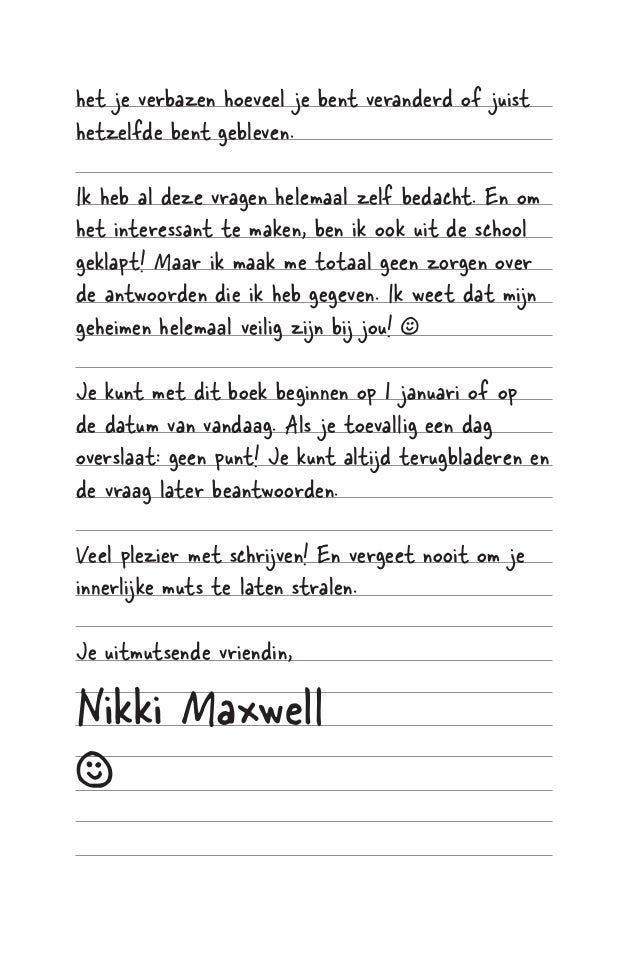 het je verbazen hoeveel je bent veranderd of juist
hetzelfde bent gebleven.
Ik heb al deze vragen helemaal zelf bedacht. En om
het interessant te maken, ben ik ook uit de school
geklapt! Maar ik maak me totaal geen zorgen over
de antwoorden die ik heb gegeven. Ik weet dat mijn
geheimen helemaal veilig zijn bij jou! ☺
Je kunt met dit boek beginnen op 1 januari of op
de datum van vandaag. Als je toevallig een dag
overslaat: geen punt! Je kunt altijd terugbladeren en
de vraag later beantwoorden.
Veel plezier met schrijven! En vergeet nooit om je
innerlijke muts te laten stralen.
Je uitmutsende vriendin,
Nikki Maxwell
☺